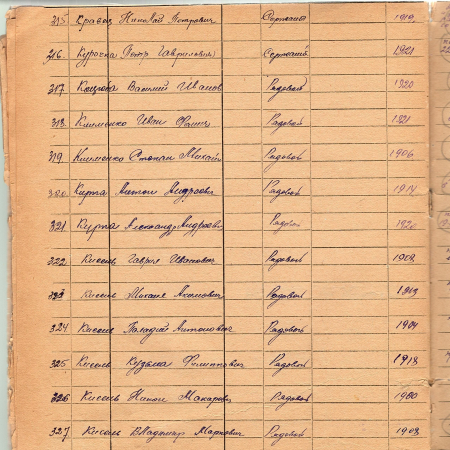 315 Кравец Николай Петрович Сержант 1919
316. Курочка Петр Гаврилович Сержант 1921
317. Коцюба Василий Иванов Рядовой 1920
318. Клименко Иван Рядовой 1921
319 Клименко Степан Михайл Рядовой 1906
320. Курта Антон Андреевич Рядовой 1914
321 Курта Александр Андреевич Рядовой 1920
322 Кисель Гаврил Иванович Рядовой 1908
323 Кисель Михаил Акимович Рядовой
324 Кисель Антонович Рядовой 1904
325 Кисель Кузьма Филиппович Рядовой 1918
326 Кисель Никон Макаров Рядовой 1900
327 Кисель Владимир Маркович Рядовой 1908